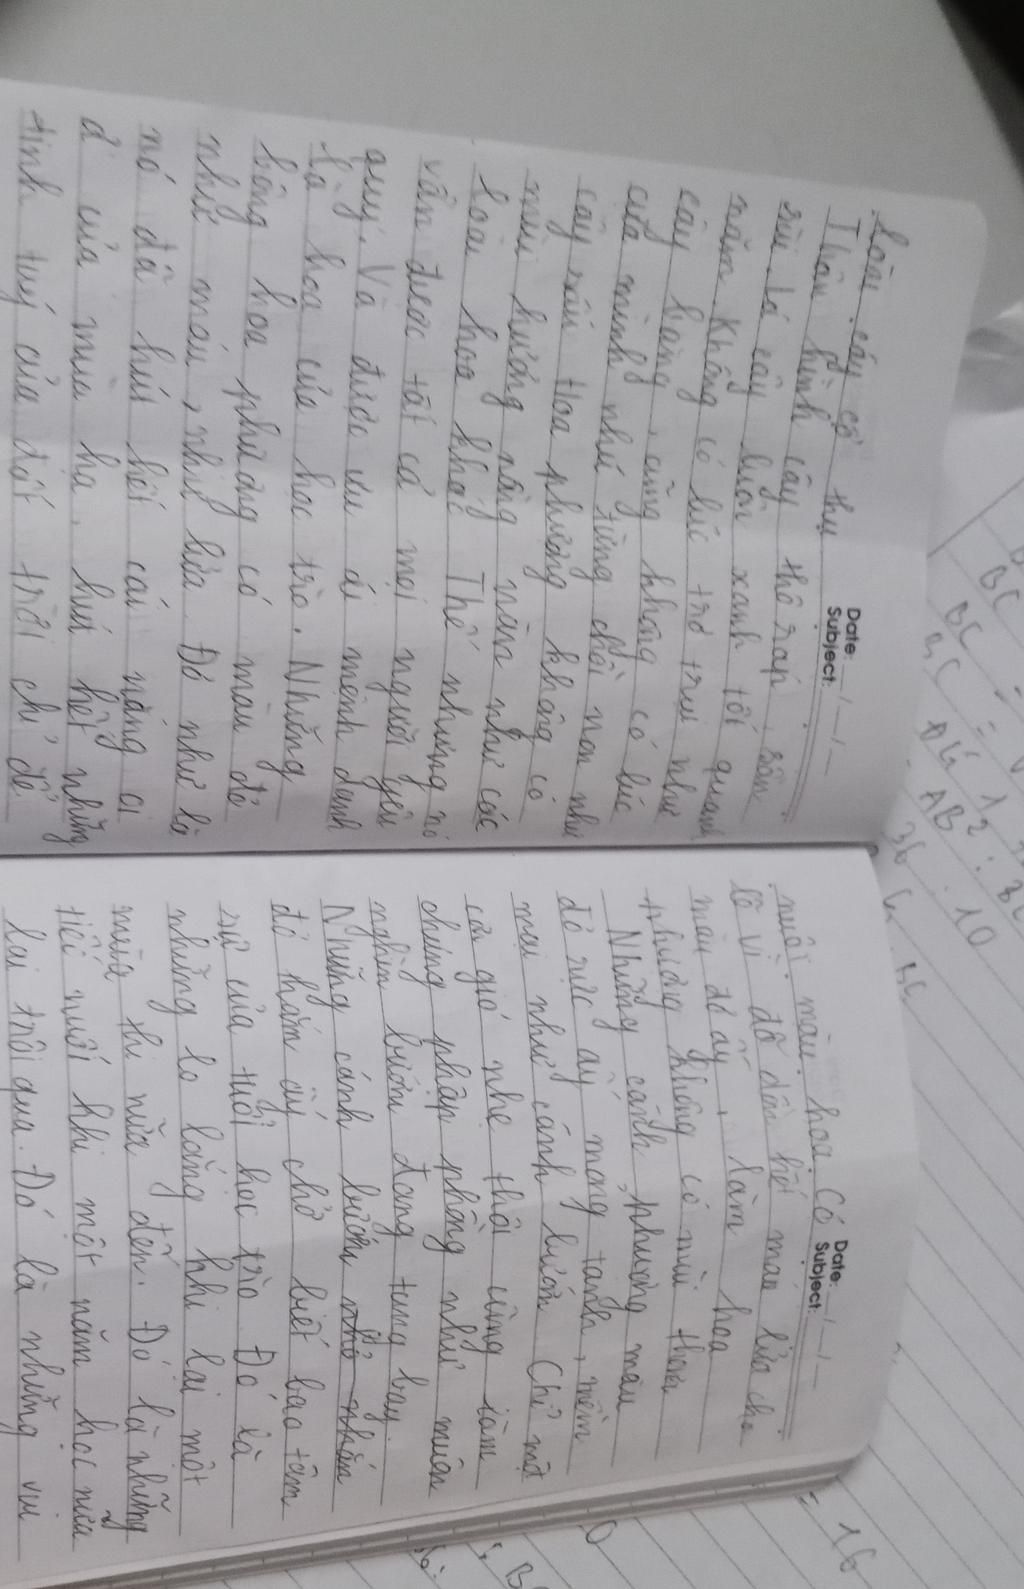 Date: __/__/__
Subject:
loài cây cổ thụ
Thân hình cây thô ráp, sần
sùi. Lá cây luôn xanh tốt quanh
năm. Không có lúc trơ trụi như
cây bàng, cũng không có lúc
của mình như từng chồi non như
cây sấu. Hoa phượng không có
mùi hương nồng nàn như các
loài hoa khác. Thế nhưng nó
vẫn được tất cả mọi người yêu
quý. Và được ưu ái mệnh danh
là hoa của học trò. Những
bông hoa phượng có màu đỏ
như máu, như lửa. Đó như là
nó đã hút hết cái nắng oi
ả của mùa hạ, hút hết những
tinh tuý của đất trời chỉ để
Date: __/__/__
Subject:
nuôi màu hoa. Có
lẽ vì đổ dồn hết màu lửa cho
màu đỏ ấy, làm hoa
phượng không có mùi thơm
Những cánh phượng màu
đỏ rực ấy mang tanh, mềm
mại như cánh bướm. Chỉ một
cơn gió nhẹ thôi cũng làm
chúng phập phồng như muôn
nghìn bướm đang tung bay.
Những cánh bướm
đỏ thắm ấy chở biết bao tâm
sự của tuổi học trò. Đó là
những lo lắng khi lại một
mùa thi nữa đến. Đó là những
tiếc nuối khi một năm học nữa
lại trôi qua. Đó là những vui
BC
BC
AB²
36
10
BC
= 16